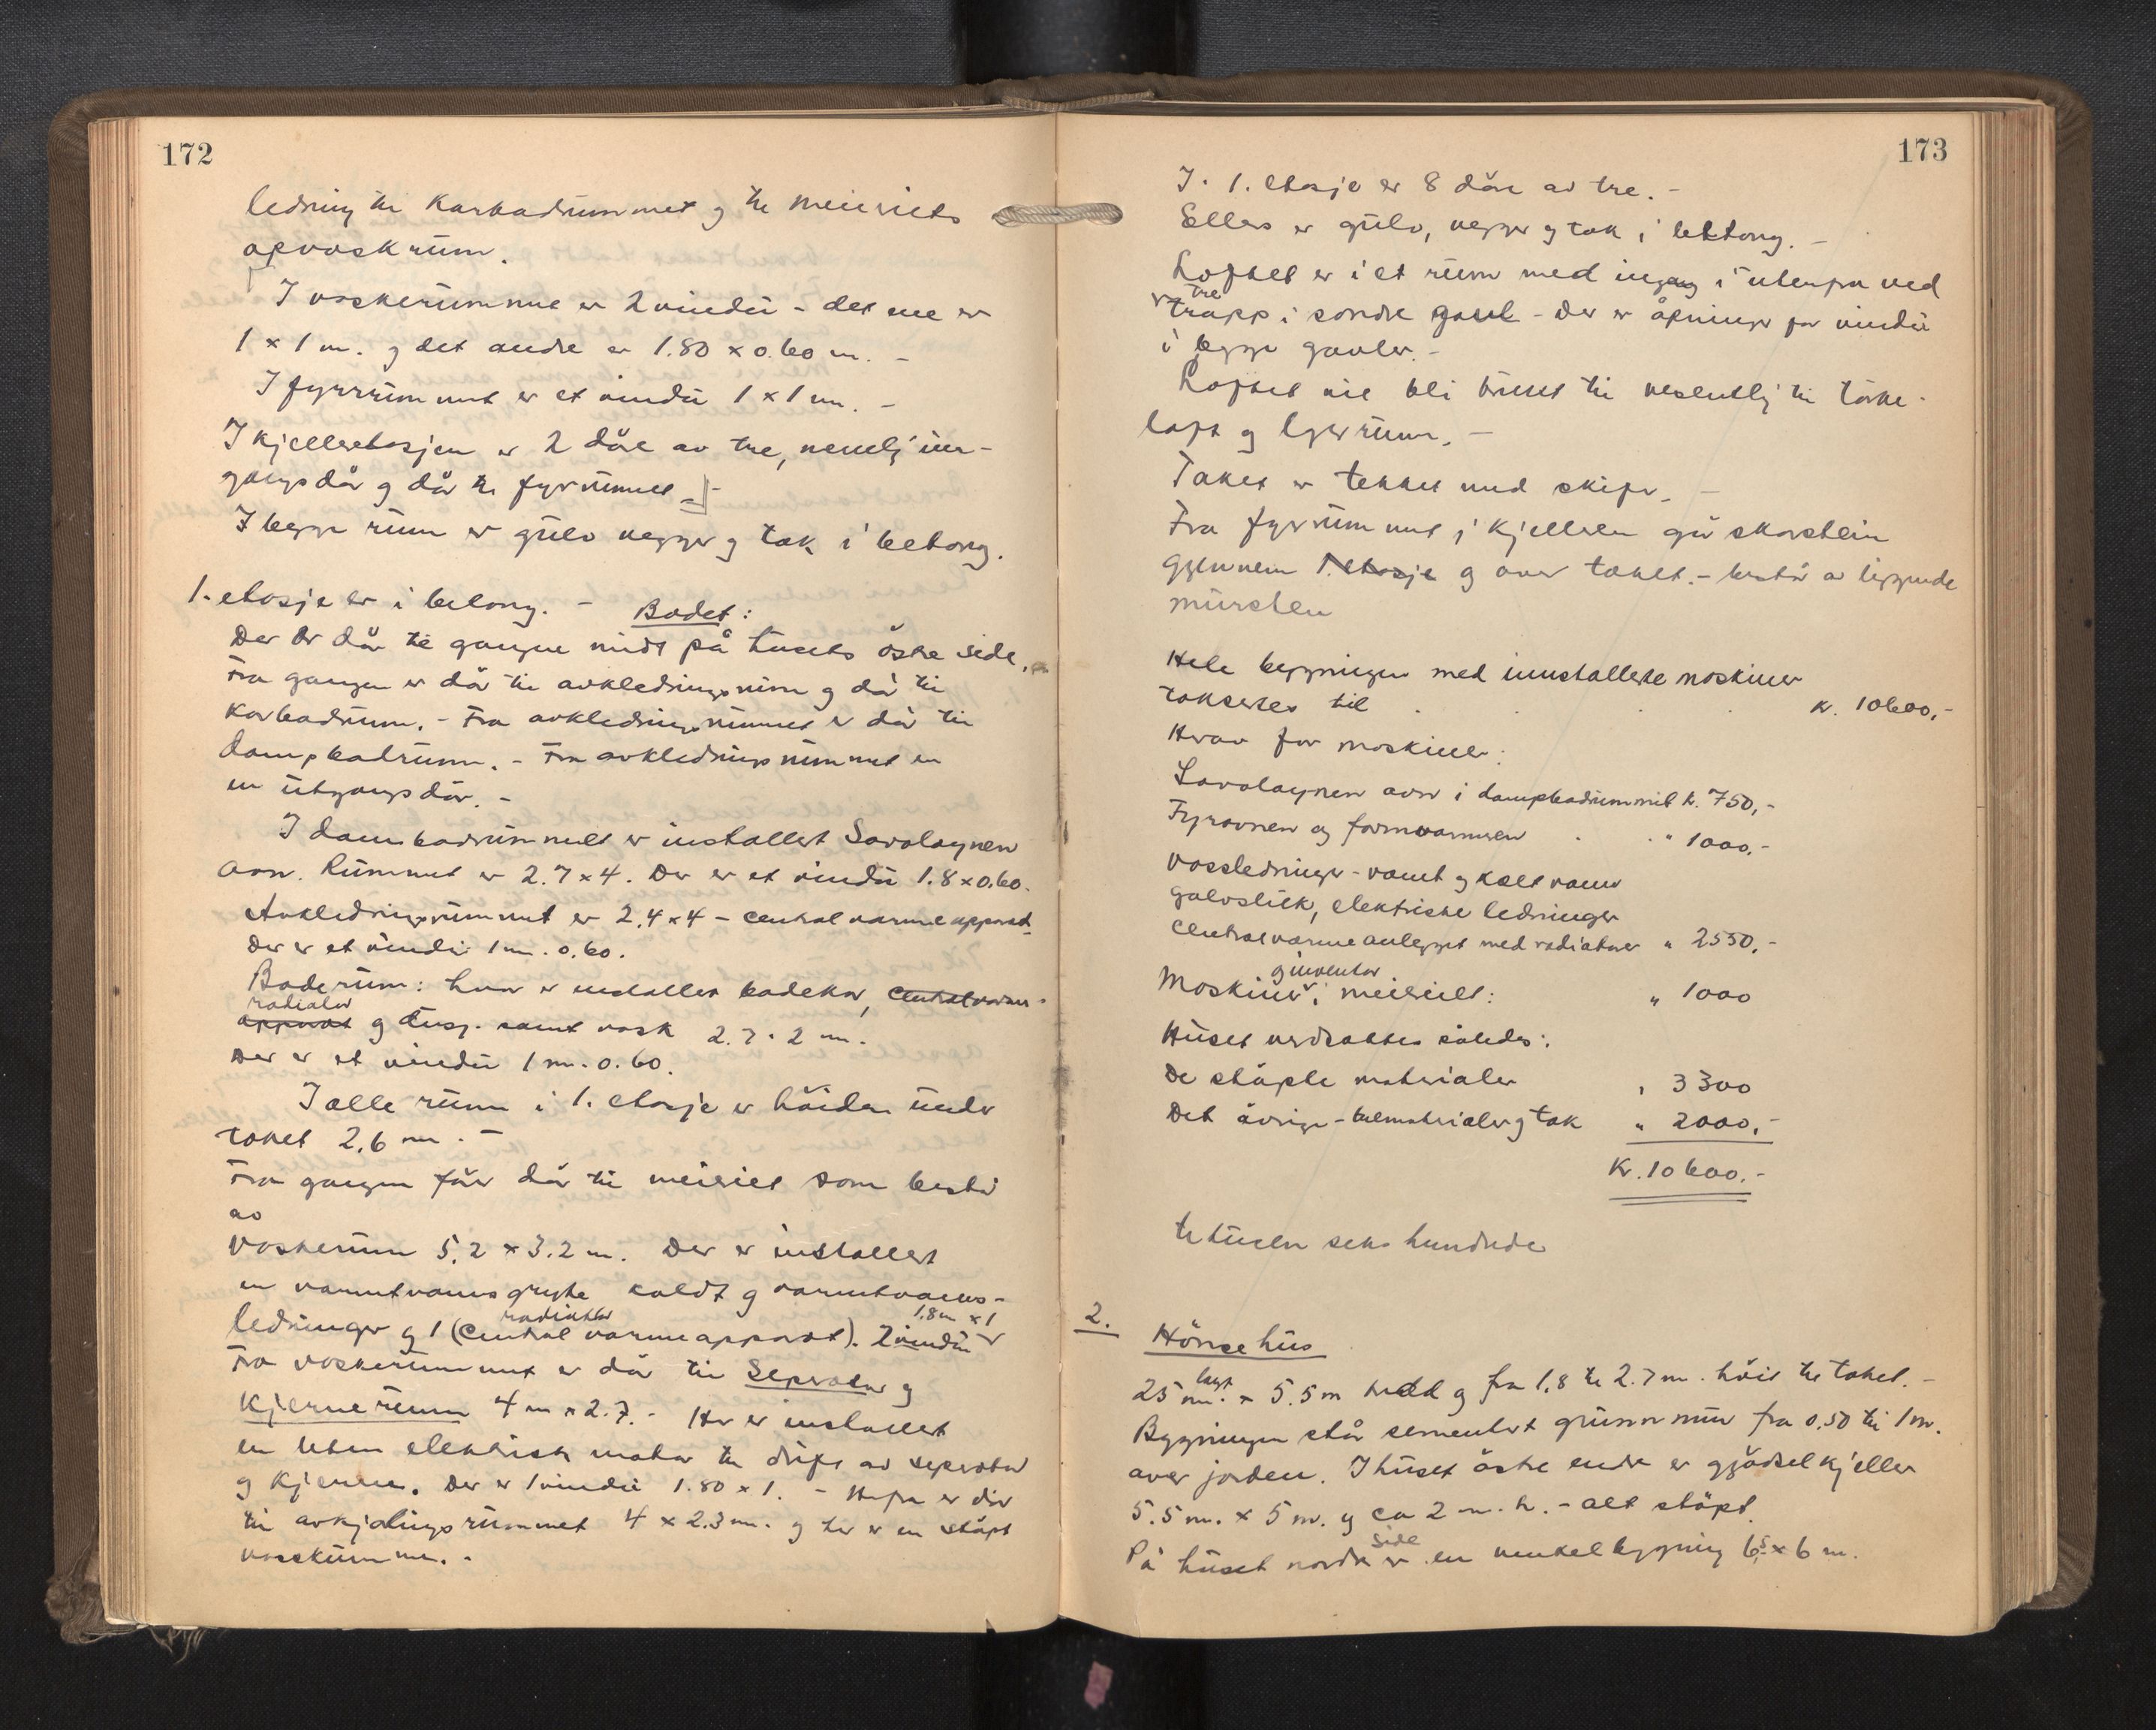 172
ledning til karbadrummet og til meieriets
opvaskrum.
I vaskerummet er 2 vindu - det ene er
1 x 1 m. og det andre er 1.80 x 0.60 m. -
I fyrrummet er et vindu 1 x 1 m. -
I kjelleretasjen er 2 döre av tre, nemlig inn-
gangsdör og dör til fyrrummet. -
I begge rum er gulv vegger og tak i betong.
1. etasje er i betong. - Badet:
Der er dör til gangen midt på husets östre side.
Fra gangen er dör til avkledningsrum og dör til
karbadrum. - Fra avkledningsrummet er dör til
dampbadrum. - Fra avkledningsrummet er
en utgangsdör. -
I dampbadrummet er installert Savolaynen
ovn. Rummet er 2.7 x 4. Der er et vindu 1.8 x 0.60.
Avkledningsrummet er 2.4 x 4 - centralvarmeapparat.
Der er et vindu 1 m. 0.60.
Baderum: hvor er installert badekar, centralvarme-
radiator
apparat og dusj. samt vask 2.7 · 2 m.
Der er et vindu 1 m. 0.60.
I alle rum i 1. etasje er höiden under
taket 2.6 m. -
Fra gangen förer dör til meieriet som består
av
vaskerum 5.2 x 3.2 m. Der er installert
en varmtvansgryte kaldt og varmtvanns-
radiator 1.8 m x 1
ledninger og 1 (central varmeapparat). 2 vindu
Fra vaskerummet er dör til Separator og
kjernerum 4 m x 2.7. - Her er installert
en liten elektrisk motor til drift av separator
og kjerne. Der er 1 vindu 1.80 x 1. - Herfra er dör
til avkjölingsrummet 4 x 2.3 m. og her er en stöpt
vasskumme. -
173
I. 1. etasje er 8 döre av tre. -
Ellers er gulv, vegger og tak i bettong. -
Loftet er i et rum med ingang i utenfra ved
tre
trapp i söndre gavl - Der er åpninger for vindu
i begge gavler. -
Loftet vil bli brukt til vesentlig til törke-
loft og lyerrum. -
Taket er tekket med skifer. -
Fra fyrrummet i kjelleren går skorstein
gjennem 1. etasje og over taket. - består av liggende
mursten
Hele bygningen med innstallerte maskiner
takseres til . . . kr. 10600,-
Hvav for maskiner:
Savolaynen ovn i dampbadrummet kr. 750,-
Fyrovnen og formvarmeren . . " 1000,-
Vassledninger - varmt og kalt vann
gulvsluk, elektriske ledninger
Centralvarmeanlegget med radiatorer " 2550,-
og inventar
Maskiner i meieriet: " 1000
Huset verdsettes således:
De stöpte materialer " 3300
Det övrige - trematerialer og tak " 2000,-
Kr. 10600.-
titusen seks hundrede
2.
Hönsehus
langt
25 m. x 5.5 m bredd og fra 1.8 til 2.7 m. höit til taket. -
Bygningen står sementert grunnmur fra 0.50 til 1 m.
over jorden. I huset östre ende er gjödselkjeller
5.5 m. x 5 m. og ca 2 m. h. - alt stöpt.
side
På huset nordre er en vinkelbygning 6.5 x 6 m.